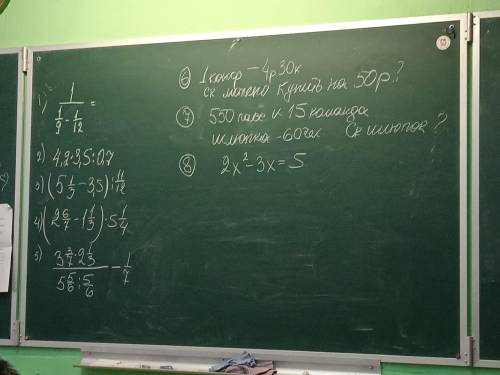 1) 1 / (1/9 - 1/12) =
2) 4,2·3,5:0,7
3) (5 1/3 - 3,5) : 11/12
4) (2 6/7 - 1 1/3) · 5 1/4
5) (3 2/7 · 2 1/3) / (5 5/6 : 5/6) - 1/7
6 1 конф - 4р 30к
ск можно купить на 50р?
7 550 пасс и 15 команда
шлюпка - 60 чел Ск шлюпок?
8 2x² - 3x = 5